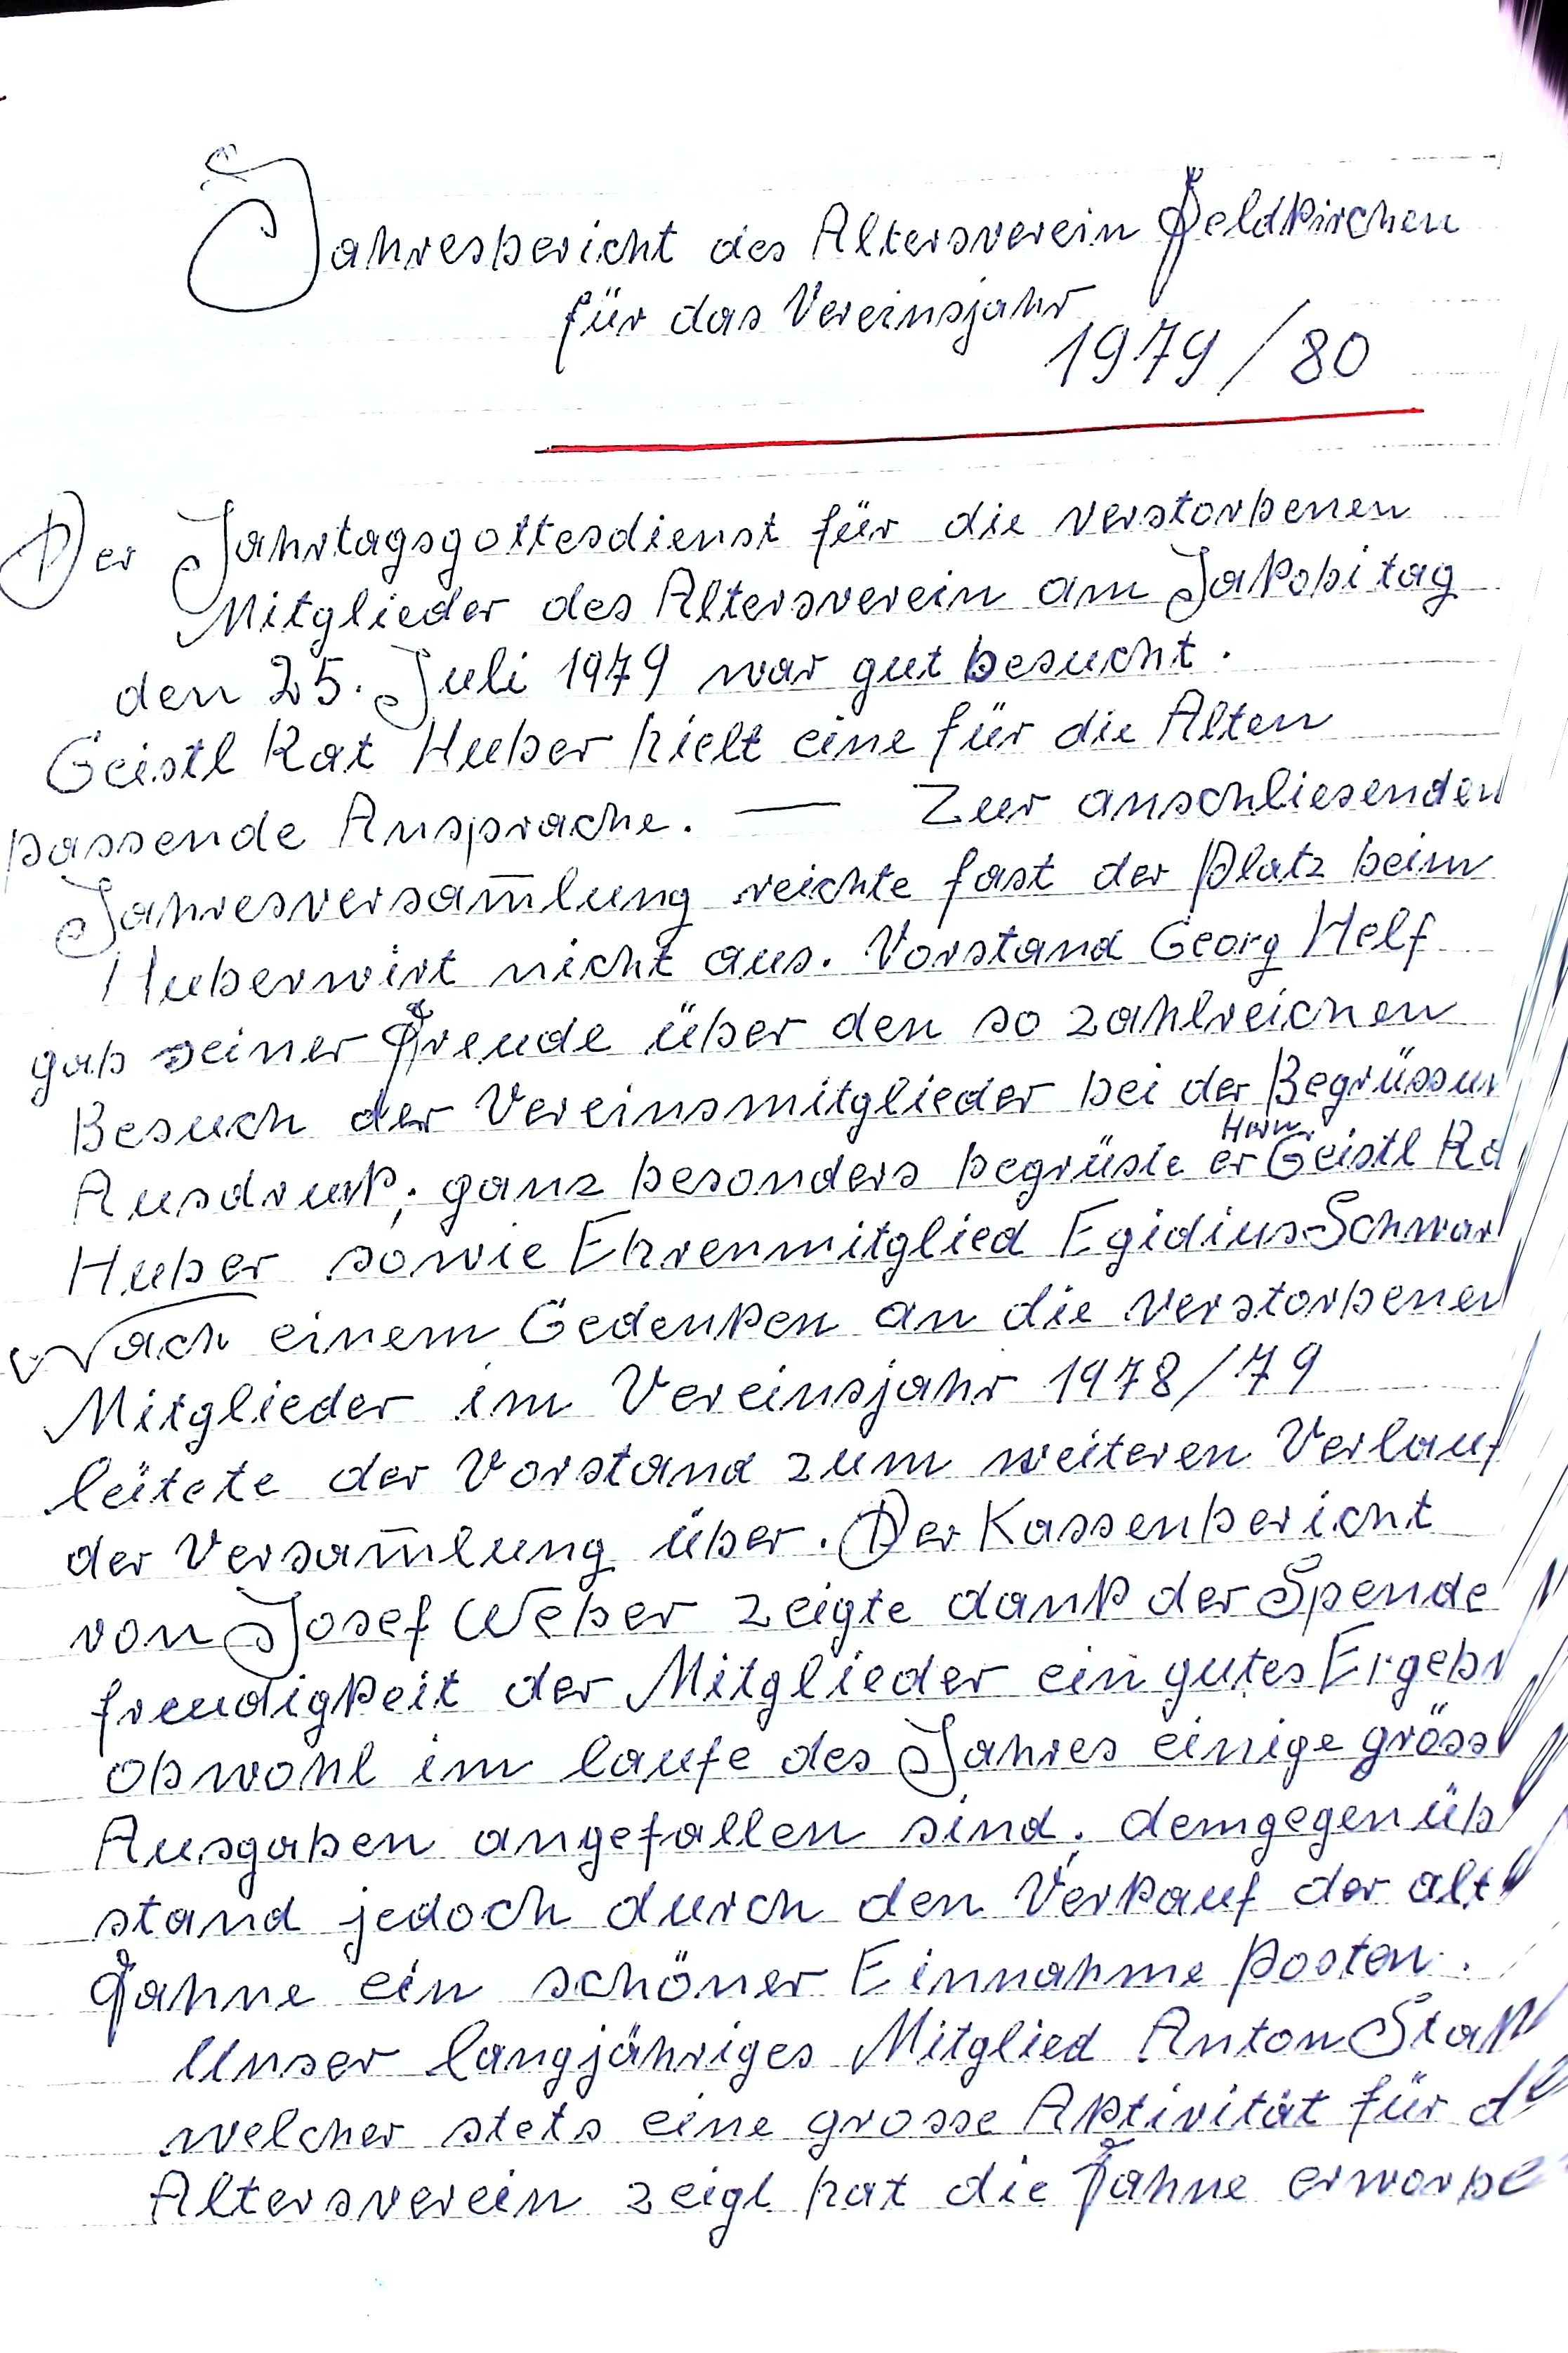 Jahresbericht des Altersverein Feldkirchen
für das Vereinsjahr
1979/80
Der Jahrtagsgottesdienst für die verstorbenen
Mitglieder des Altersverein am Jakobitag
den 25. Juli 1979 war gut besucht.
Geistl Rat Huber hielt eine für die Alten
passende Ansprache. — Zur anschliesenden
Jahresversam̄lung reichte fast der Platz beim
Huberwirt nicht aus. Vorstand Georg Helf
gab seiner Freude über den so zahlreichen
Besuch der Vereinsmitglieder bei der Begrüssun
Ausdruck; ganz besonders begrüste er Herrn Geistl Ra
Huber sowie Ehrenmitglied Egidius Schwar
Nach einem Gedenken an die verstorbenen
Mitglieder im Vereinsjahr 1978/79
leitete der Vorstand zum weiteren Verlauf
der Versam̄lung über. Der Kassenbericht
von Josef Weber zeigte dank der Spende
freudigkeit der Mitglieder ein gutes Ergebn
obwohl im laufe des Jahres einige gröss
Ausgaben angefallen sind; demgegenüb
stand jedoch durch den Verkauf der alt
Fahne ein schöner Einnahme posten.
Unser langjähriges Mitglied Anton
welcher stets eine grosse Aktivität für de
Altersverein zeigt hat die Fahne erworbe